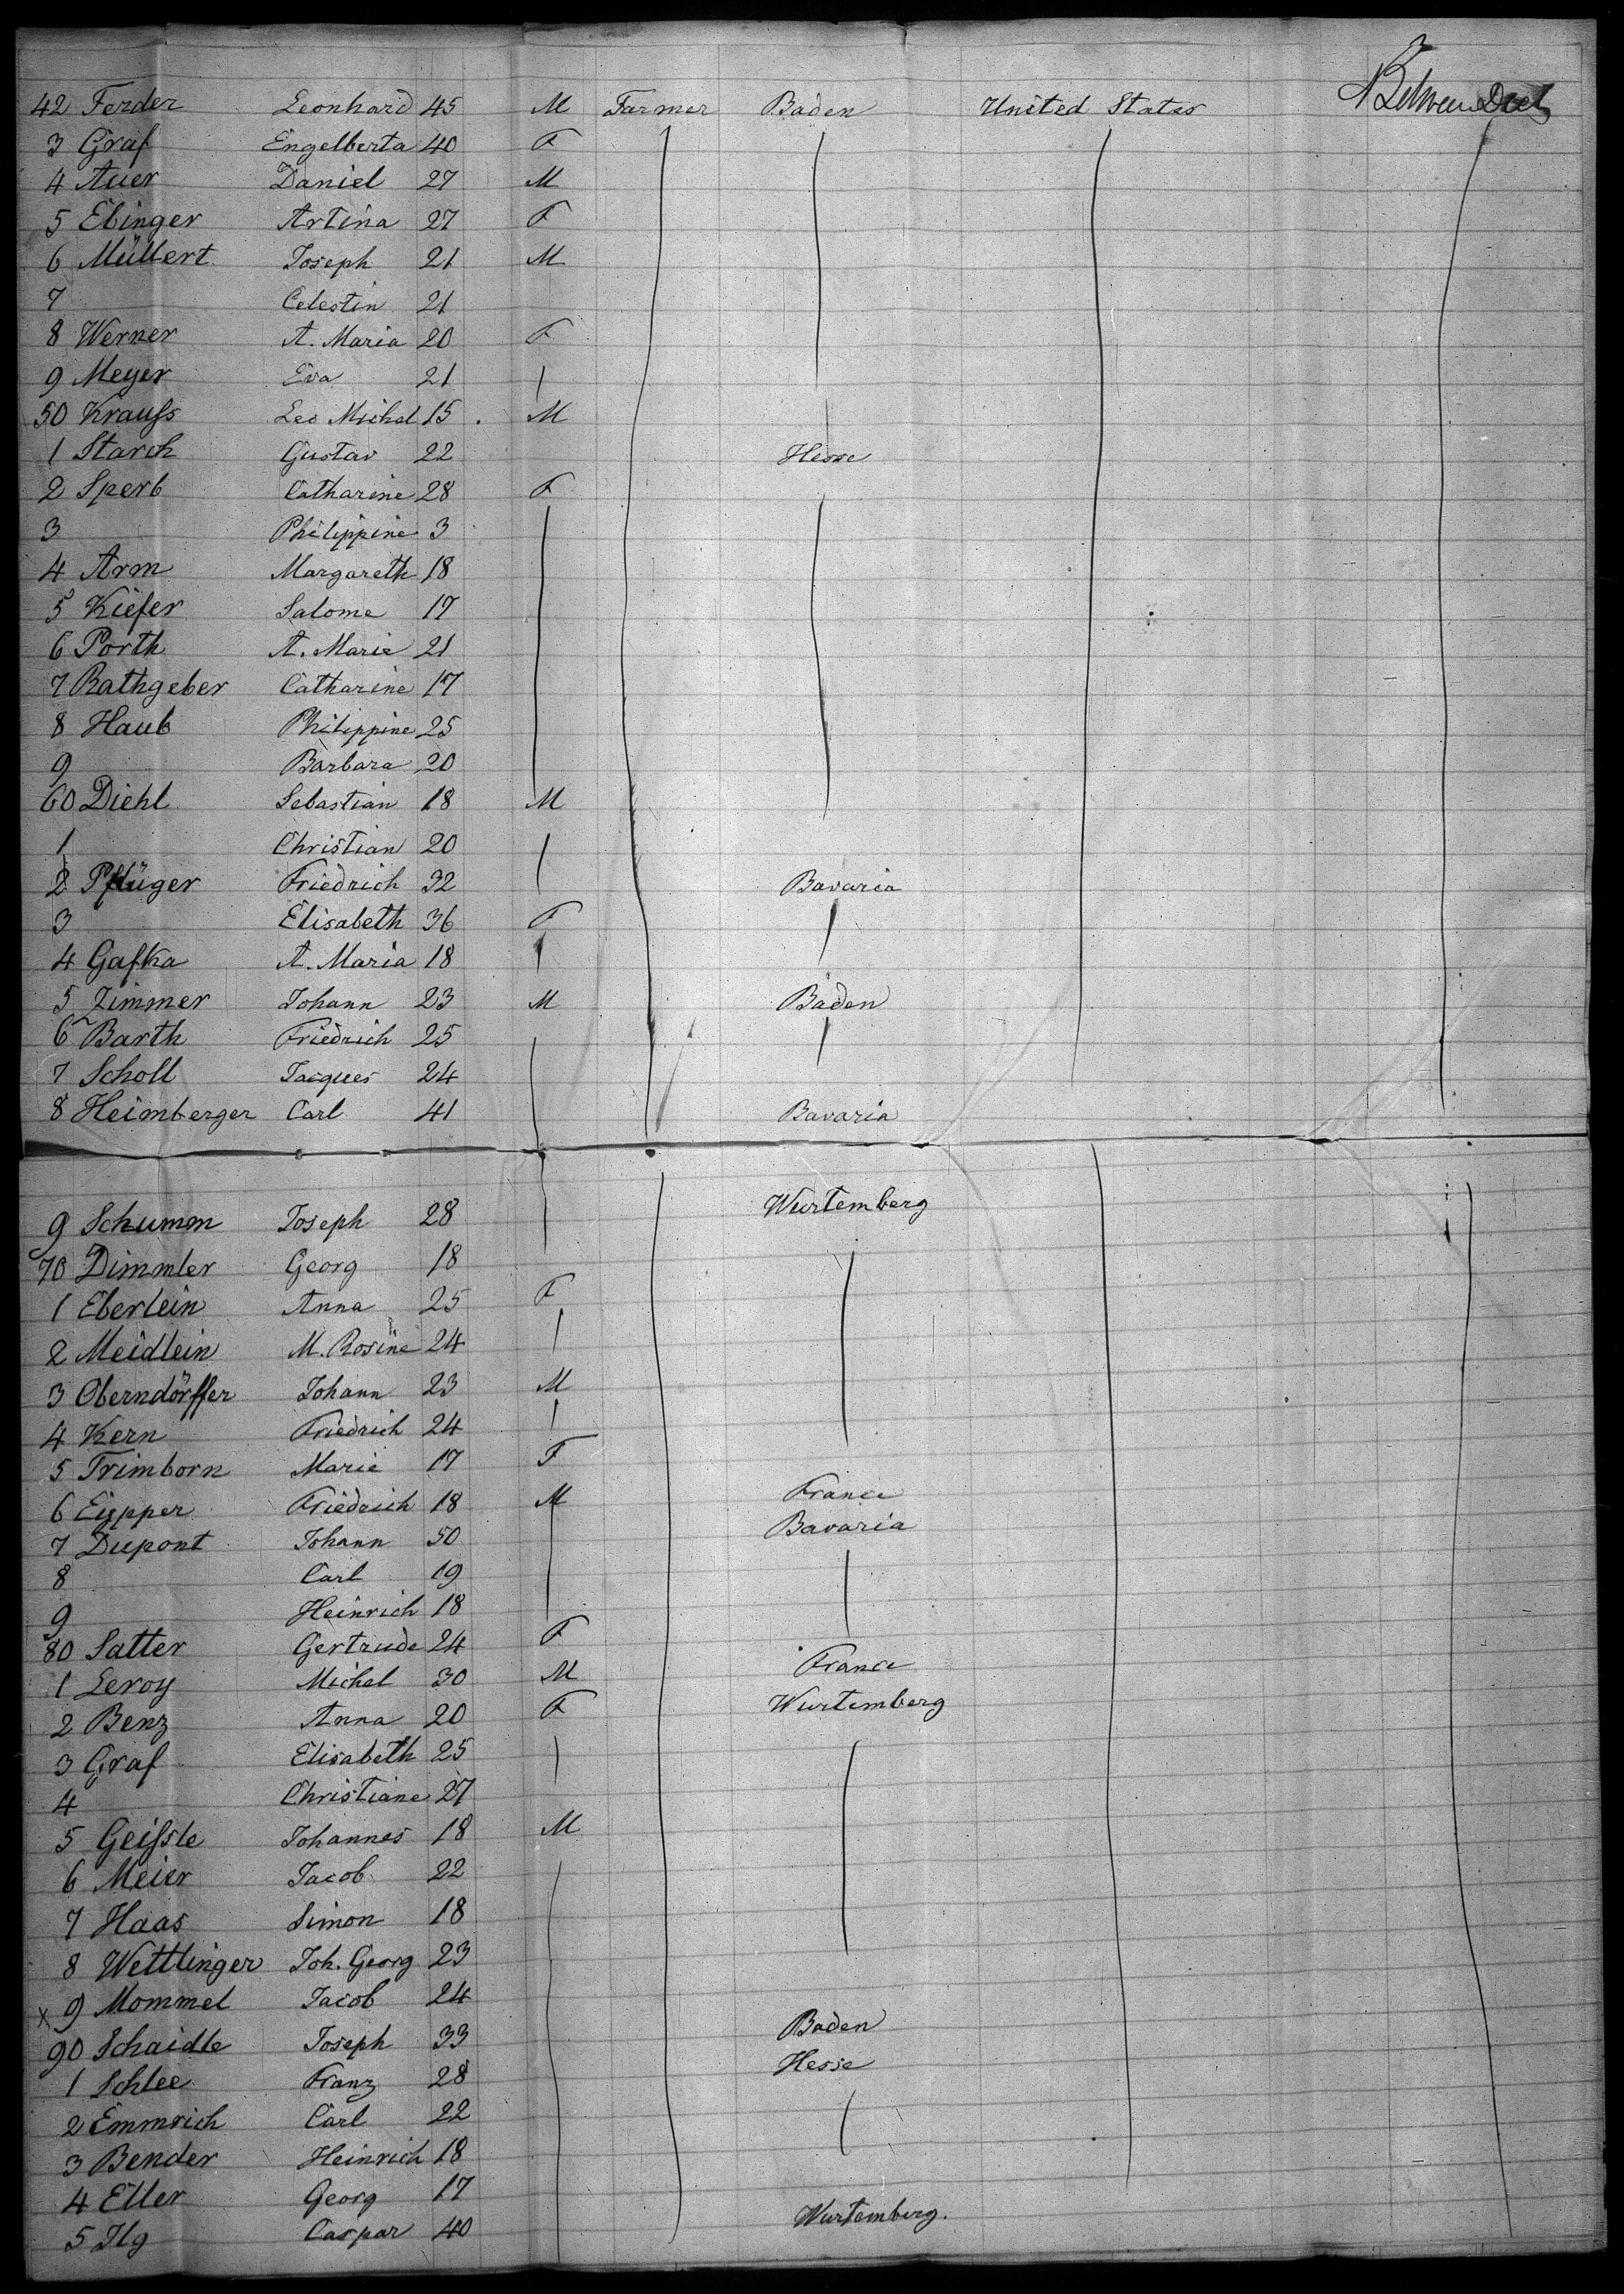 42 Ferder Leonhard 45 M Farmer Baden United States Between Deck
3 Graf Engelberta 40 F
4 Auer Daniel 27 M
5 Ebinger Artina 27 F
6 Müllert Joseph 21 M
7 Celestin 21
8 Werner A. Maria 20 F
9 Meyer Eva 21
50 Krauſs Leo Michel 15 M
1 Starck Gustav 22 Hesse
2 Sperb Catharine 28 F
3 Philippine 3
4 Arm Margareth 18
5 Kiefer Salome 17
6 Porth A. Marie 21
7 Rathgeber Catharine 17
8 Haub Philippine 25
9 Barbara 20
60 Diehl Sebastian 18 M
1 Christian 20
2 Pflüger Friedrich 32 Bavaria
3 Elisabeth 36 F
4 Gafka A. Maria 18
5 Zimmer Johann 23 M Baden
6 Barth Friedrich 25
7 Scholl Jacques 24
8 Heimberger Carl 41 Bavaria
9 Schumm Joseph 28 Wurtemberg
70 Dimmler Georg 18
1 Eberlein Anna 25 F
2 Meidlein M. Rosine 24
3 Oberndörffer Johann 23 M
4 Kern Friedrich 24
5 Trimborn Marie 17 F
6 Eypper Friedrich 18 M France
7 Dupont Johann 50 Bavaria
8 Carl 19
9 Heinrich 18
80 Satter Gertrude 24 F
1 Leroy Michel 30 M France
2 Benz Anna 20 F Wurtemberg
3 Graf Elisabeth 25
4 Christiane 27
5 Geiſsle Johannes 18 M
6 Meier Jacob 22
7 Haas Simon 18
8 Wettlinger Joh. Georg 23
x 9 Mommel Jacob 24
90 Schaidle Joseph 33 Baden
1 Schlee Franz 28 Hesse
2 Emmrich Carl 22
3 Bender Heinrich 18
4 Eller Georg 17
5 Ilg Caspar 40 Wurtemberg.